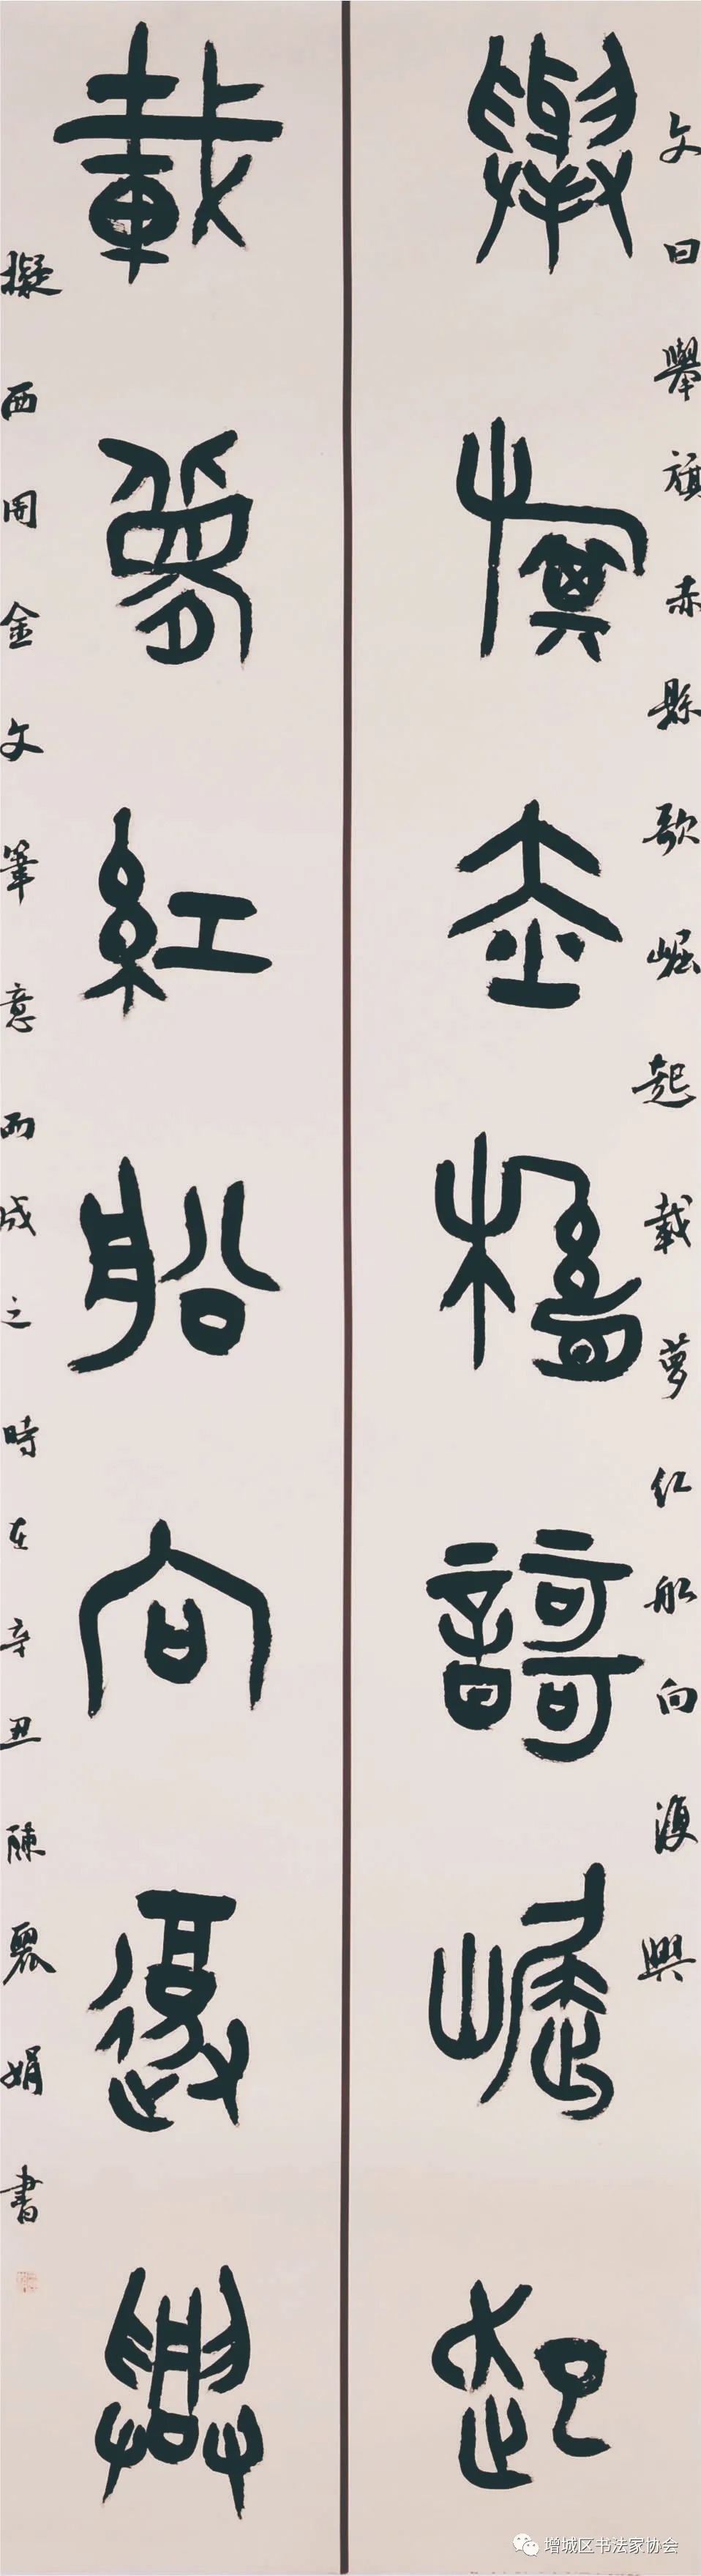 文曰舉旗赤縣歌崛起載夢紅船向復興
舉旗赤縣歌崛起
載夢紅船向復興
擬西周金文筆意而成之時在辛丑陳麗娟書
增城区书法家协会